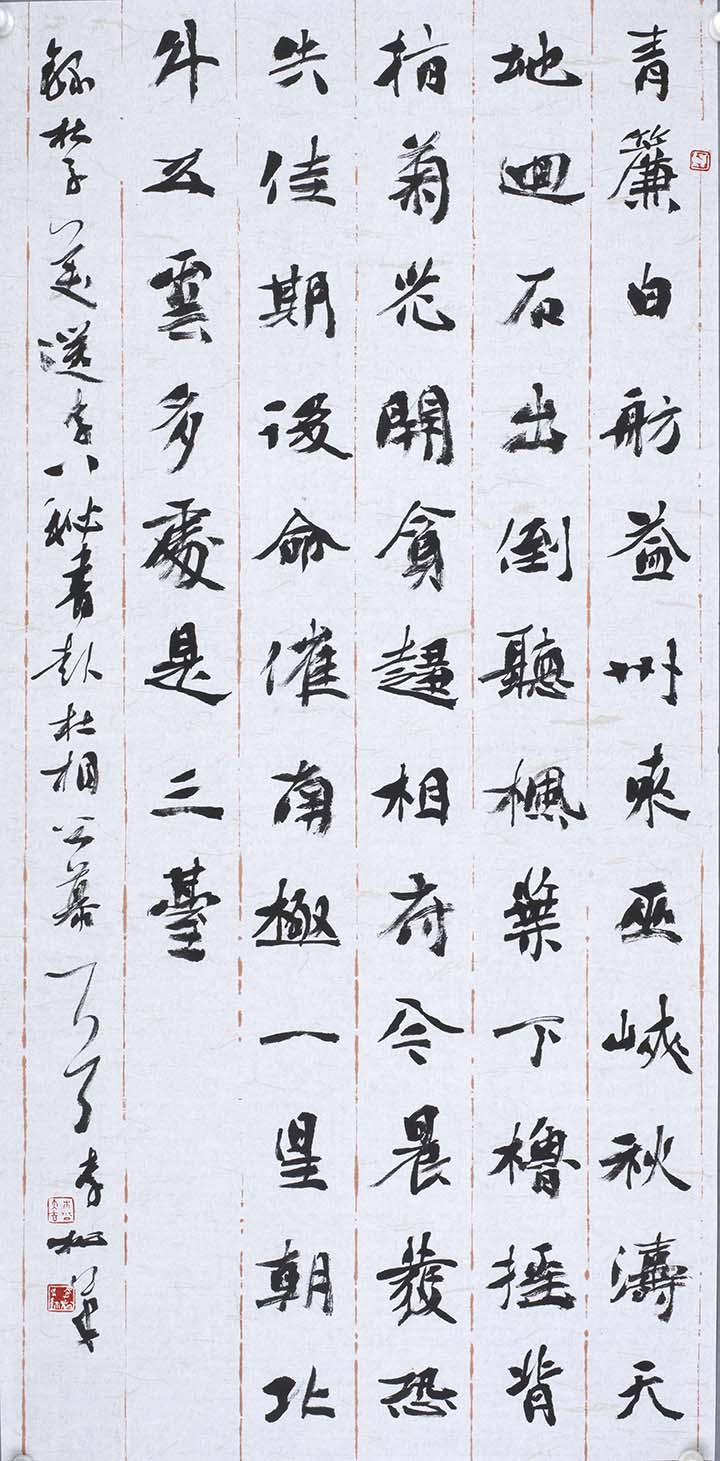 青簾白舫益州來巫峽秋濤天
地迴石出倒聽楓葉下櫓搖背
指菊花開貪趨相府今晨發恐
失佳期後命催南極一星朝北
斗五雲多處是三臺
錄杜子美送李八秘書赴杜相公幕 李